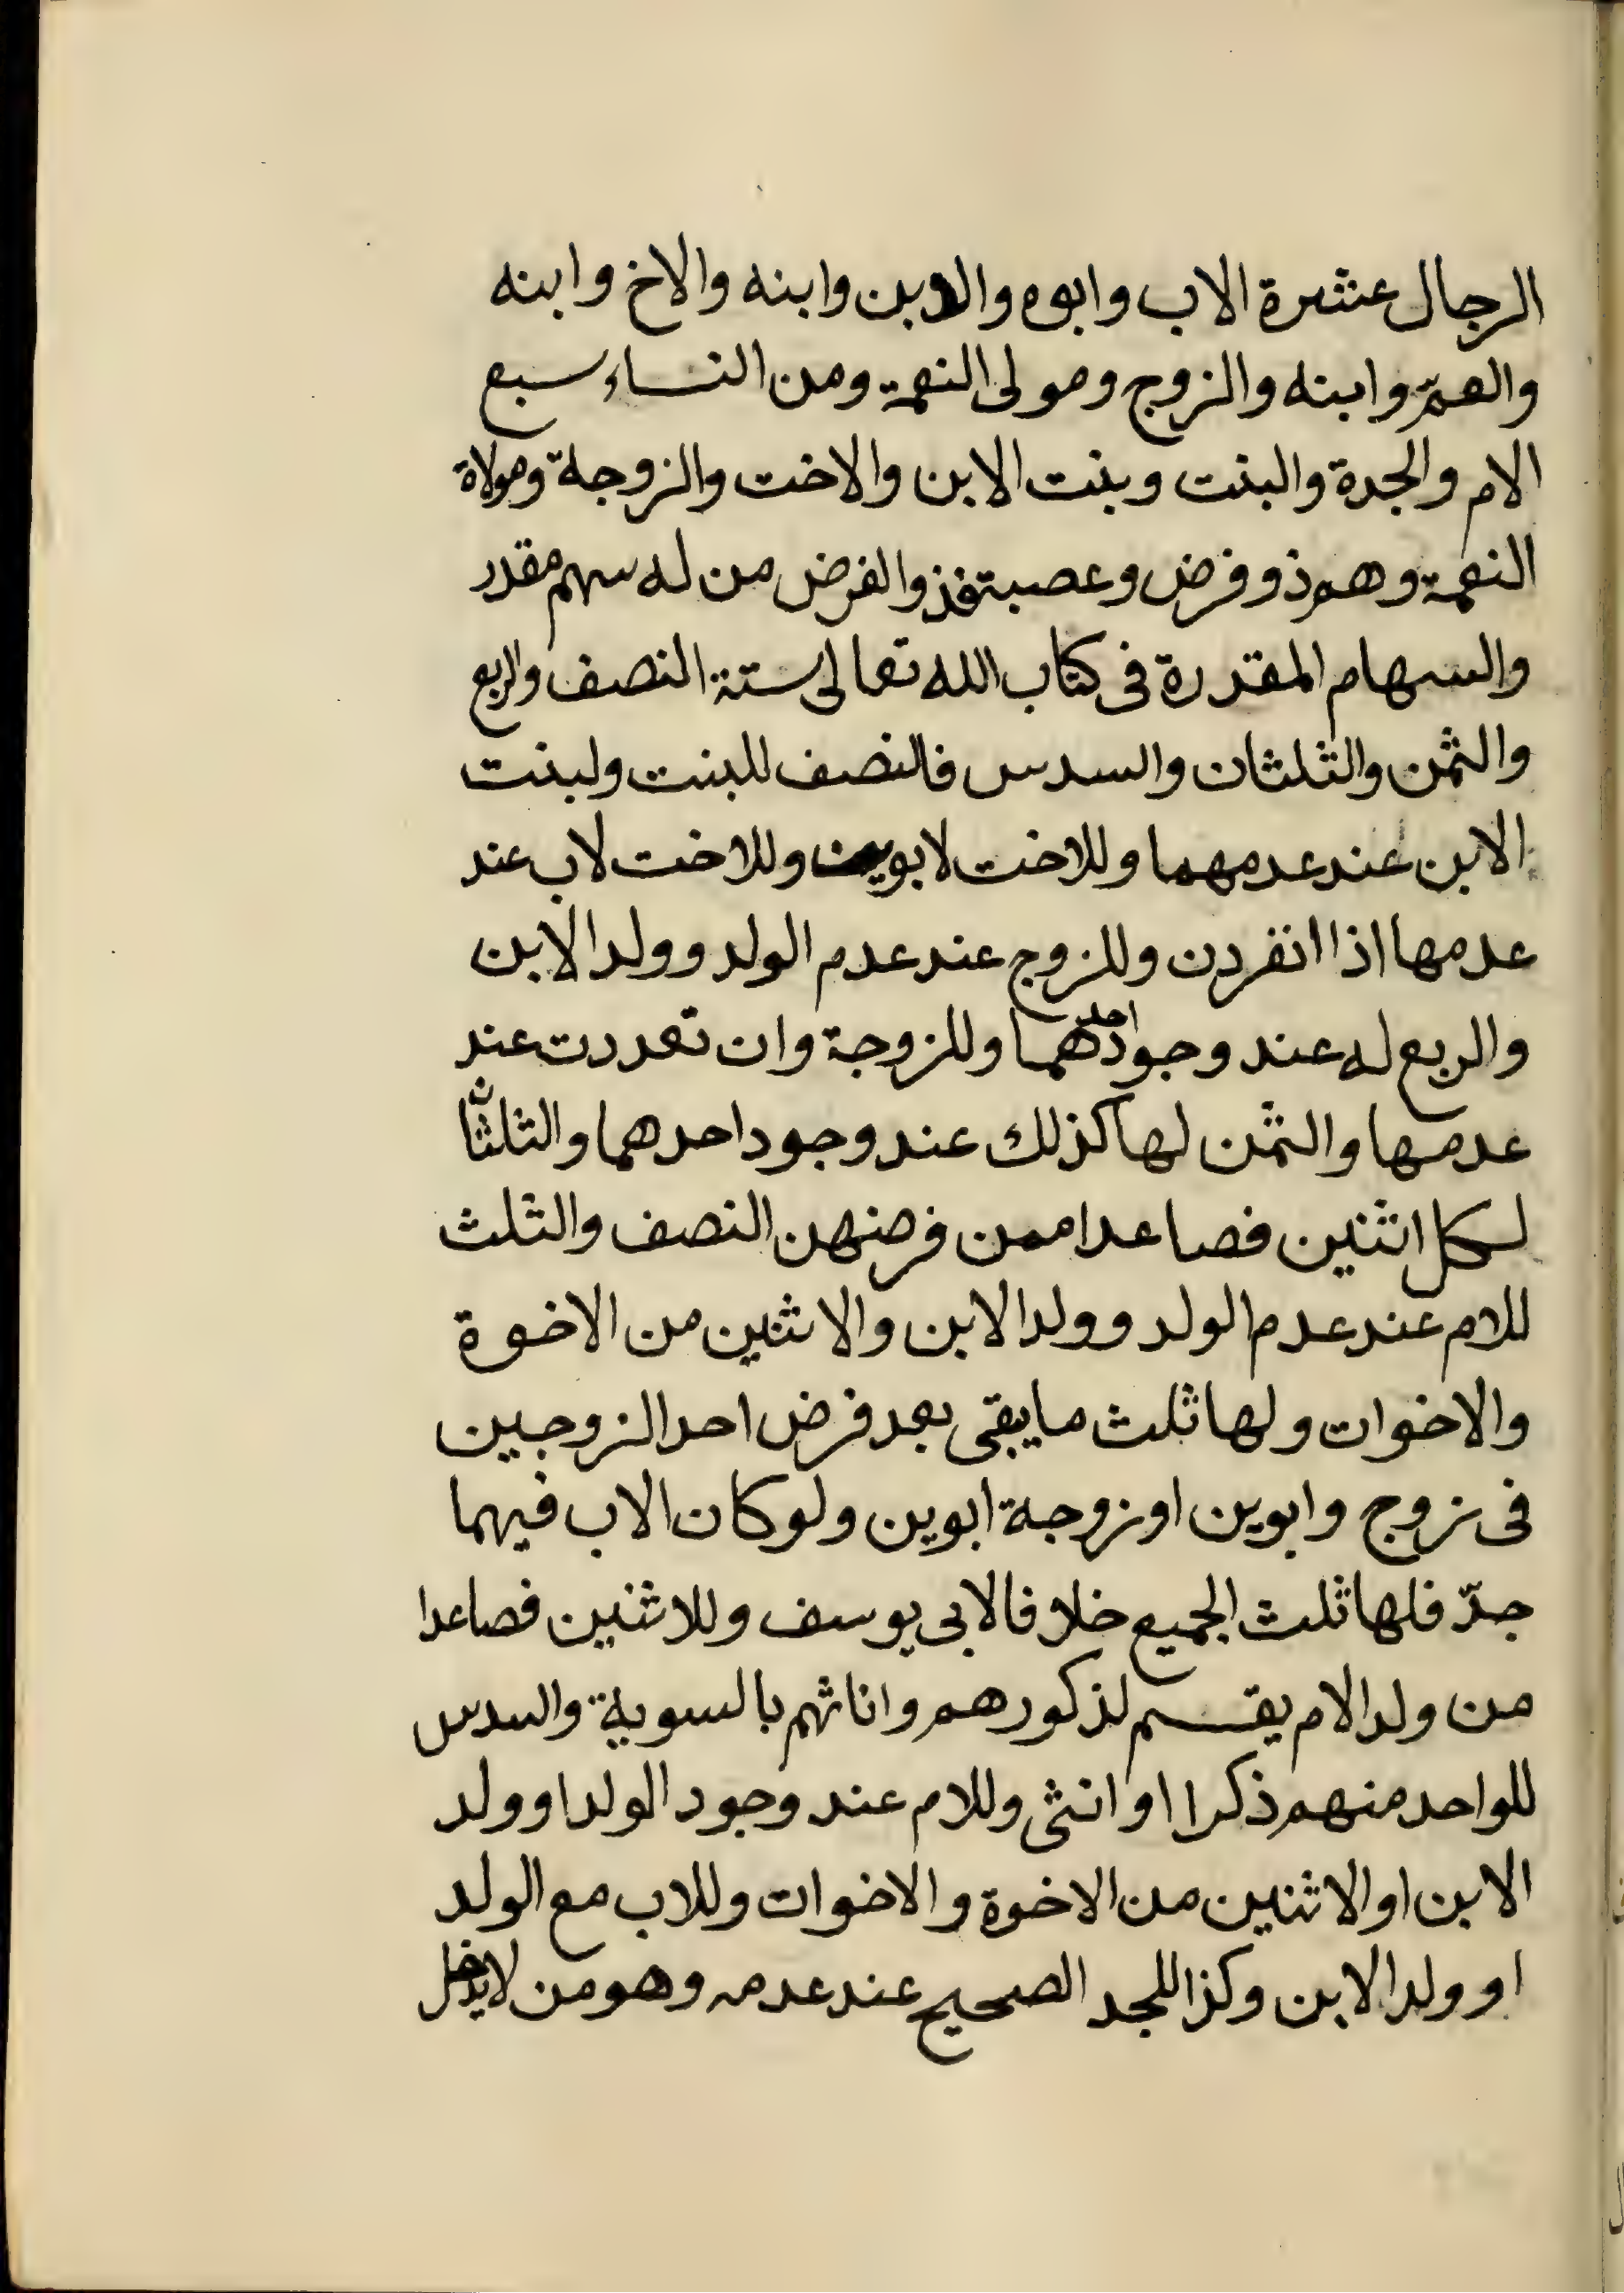 الرجال عشرة الاب وابوه والابن وابنه والاخ وابنه
والعمّ وابنه والزوج ومولى النعمة ومن النساء سبع
الام والجدة والبنت وبنت الابن والاخت والزوجة ومولاة
النعمة وهم ذو فرض وعصبة فذو الفرض من له سهم مقدر
والسهام المقدرة فى كتاب الله تعالى ستة النصف والربع
والثمن والثلثان والسدس فالنصف للبنت ولبنت
الابن عند عدمهما وللاخت لابوين وللاخت لاب عند
عدمها اذا انفردن وللزوج عند عدم الولد وولد الابن
والربع له عند وجود احدهما وللزوجة وان تعددت عند
عدمها والثمن لها كذلك عند وجود احدهما والثلثان
لكل اثنين فصاعدا ممن فرضهن النصف والثلث
للام عند عدم الولد وولد الابن والاثنين من الاخوة
والاخوات ولها ثلث مايبقى بعد فرض احد الزوجين
فى زوج وابوين او زوجة ابوين ولو كان الاب فيهما
جدّ فلها ثلث الجميع خلافا لابى يوسف وللاثنين فصاعدا
من ولد الام يقسم لذكورهم واناثهم بالسوية والسدس
للواحد منهم ذكرا او انثى وللام عند وجود الولد او ولد
الابن او الاثنين من الاخوة والاخوات وللاب مع الولد
او ولد الابن وكذا للجد الصحيح عند عدمه وهو من لايدخل